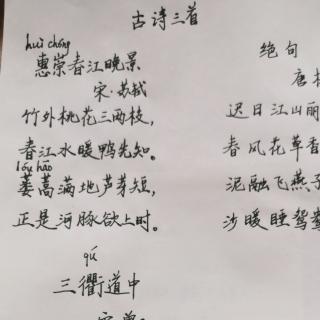 古诗三首
huì chóng
惠崇春江晚景
宋·苏轼
竹外桃花三两枝,
春江水暖鸭先知。
lóu hāo
蒌蒿满地芦芽短,
正是河豚欲上时。
qú
三衢道中
绝句
唐
迟日江山丽
春风花草香
泥融飞燕子
沙暖睡鸳鸯